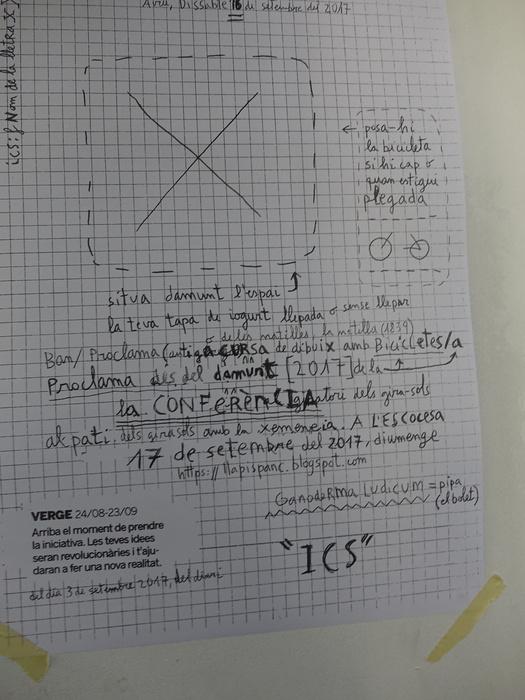 Avui, Dissabte 16 de setembre del 2017
ics: f Nom de la lletra X
← posa-hi
la bicicleta
si hi cap o
quan estigui
plegada
situa damunt l'espai
la teva tapa de iogurt llepada o sense llepar
o de les matilles, la matilla (1839)
Ban/Proclama (antiga CURSA de dibuix amb Bicicletes/a
Proclama des del damunt [2017] de la
la CONFERÈNCIA dels gira-sols
al pati, dels girasols amb la xemeneia. A L'ESCOCESA
17 de setembre del 2017, diumenge
https://llapispanc.blogspot.com
GANODERMA LUDICUM = pipa
(el bolet)
VERGE 24/08-23/09
Arriba el moment de prendre
la iniciativa. Les teves idees
seran revolucionàries i t'aju-
daran a fer una nova realitat.
del dia 3 de setembre 2017, del diari
"ICS"